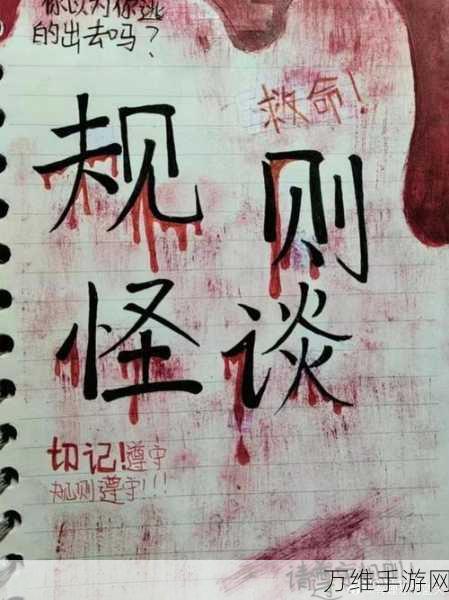 你以为你逃
的出去吗？
救命！
规则
怪谈
切记！遵守
规则遵守！！！
万维手游网